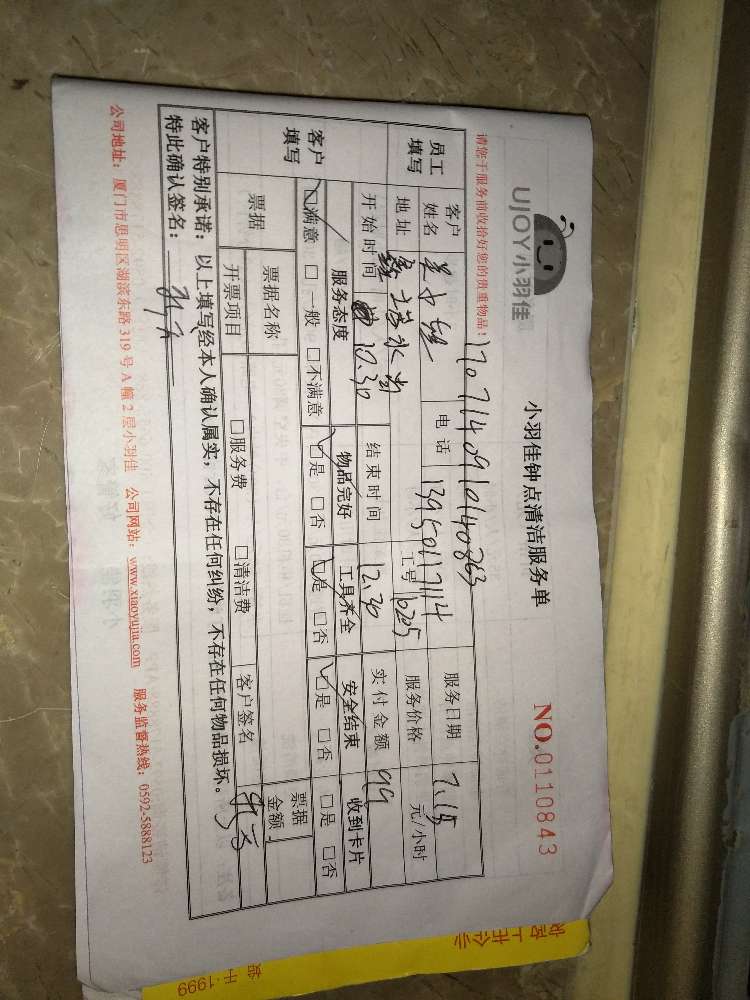 UJOY小羽佳
小羽佳钟点清洁服务单
NO.0110843
请您于服务前收拾好您的贵重物品！
1707140910140863
员工填写
客户姓名
电话 13950117114
服务日期 7.15
地址
工号 10205
服务价格 元/小时
开始时间 10.30
结束时间 12.30
实付金额 99
客户填写
服务态度 物品完好 工具齐全 安全结束 收到卡片
☑满意 □一般 □不满意 ☑是 □否 ☑是 □否 ☑是 □否 □是 □否
票据
票据名称
票据金额
开票项目 □服务费 □清洁费 客户签名
客户特别承诺：以上填写经本人确认属实，不存在任何纠纷，不存在任何物品损坏。
特此确认签名：
公司地址：厦门市思明区湖滨东路319号A幢2层小羽佳 公司网站：www.xiaoyujia.com 服务监督热线：0592-5888123
上市企业
于·1999